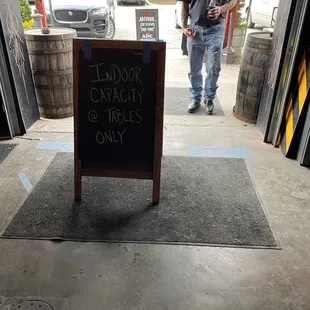 INDOOR
CAPACITY
@ TABLES
ONLY